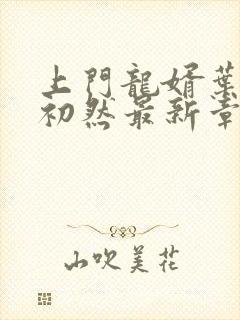 上門龍婿葉
初然最新章
山吹美花